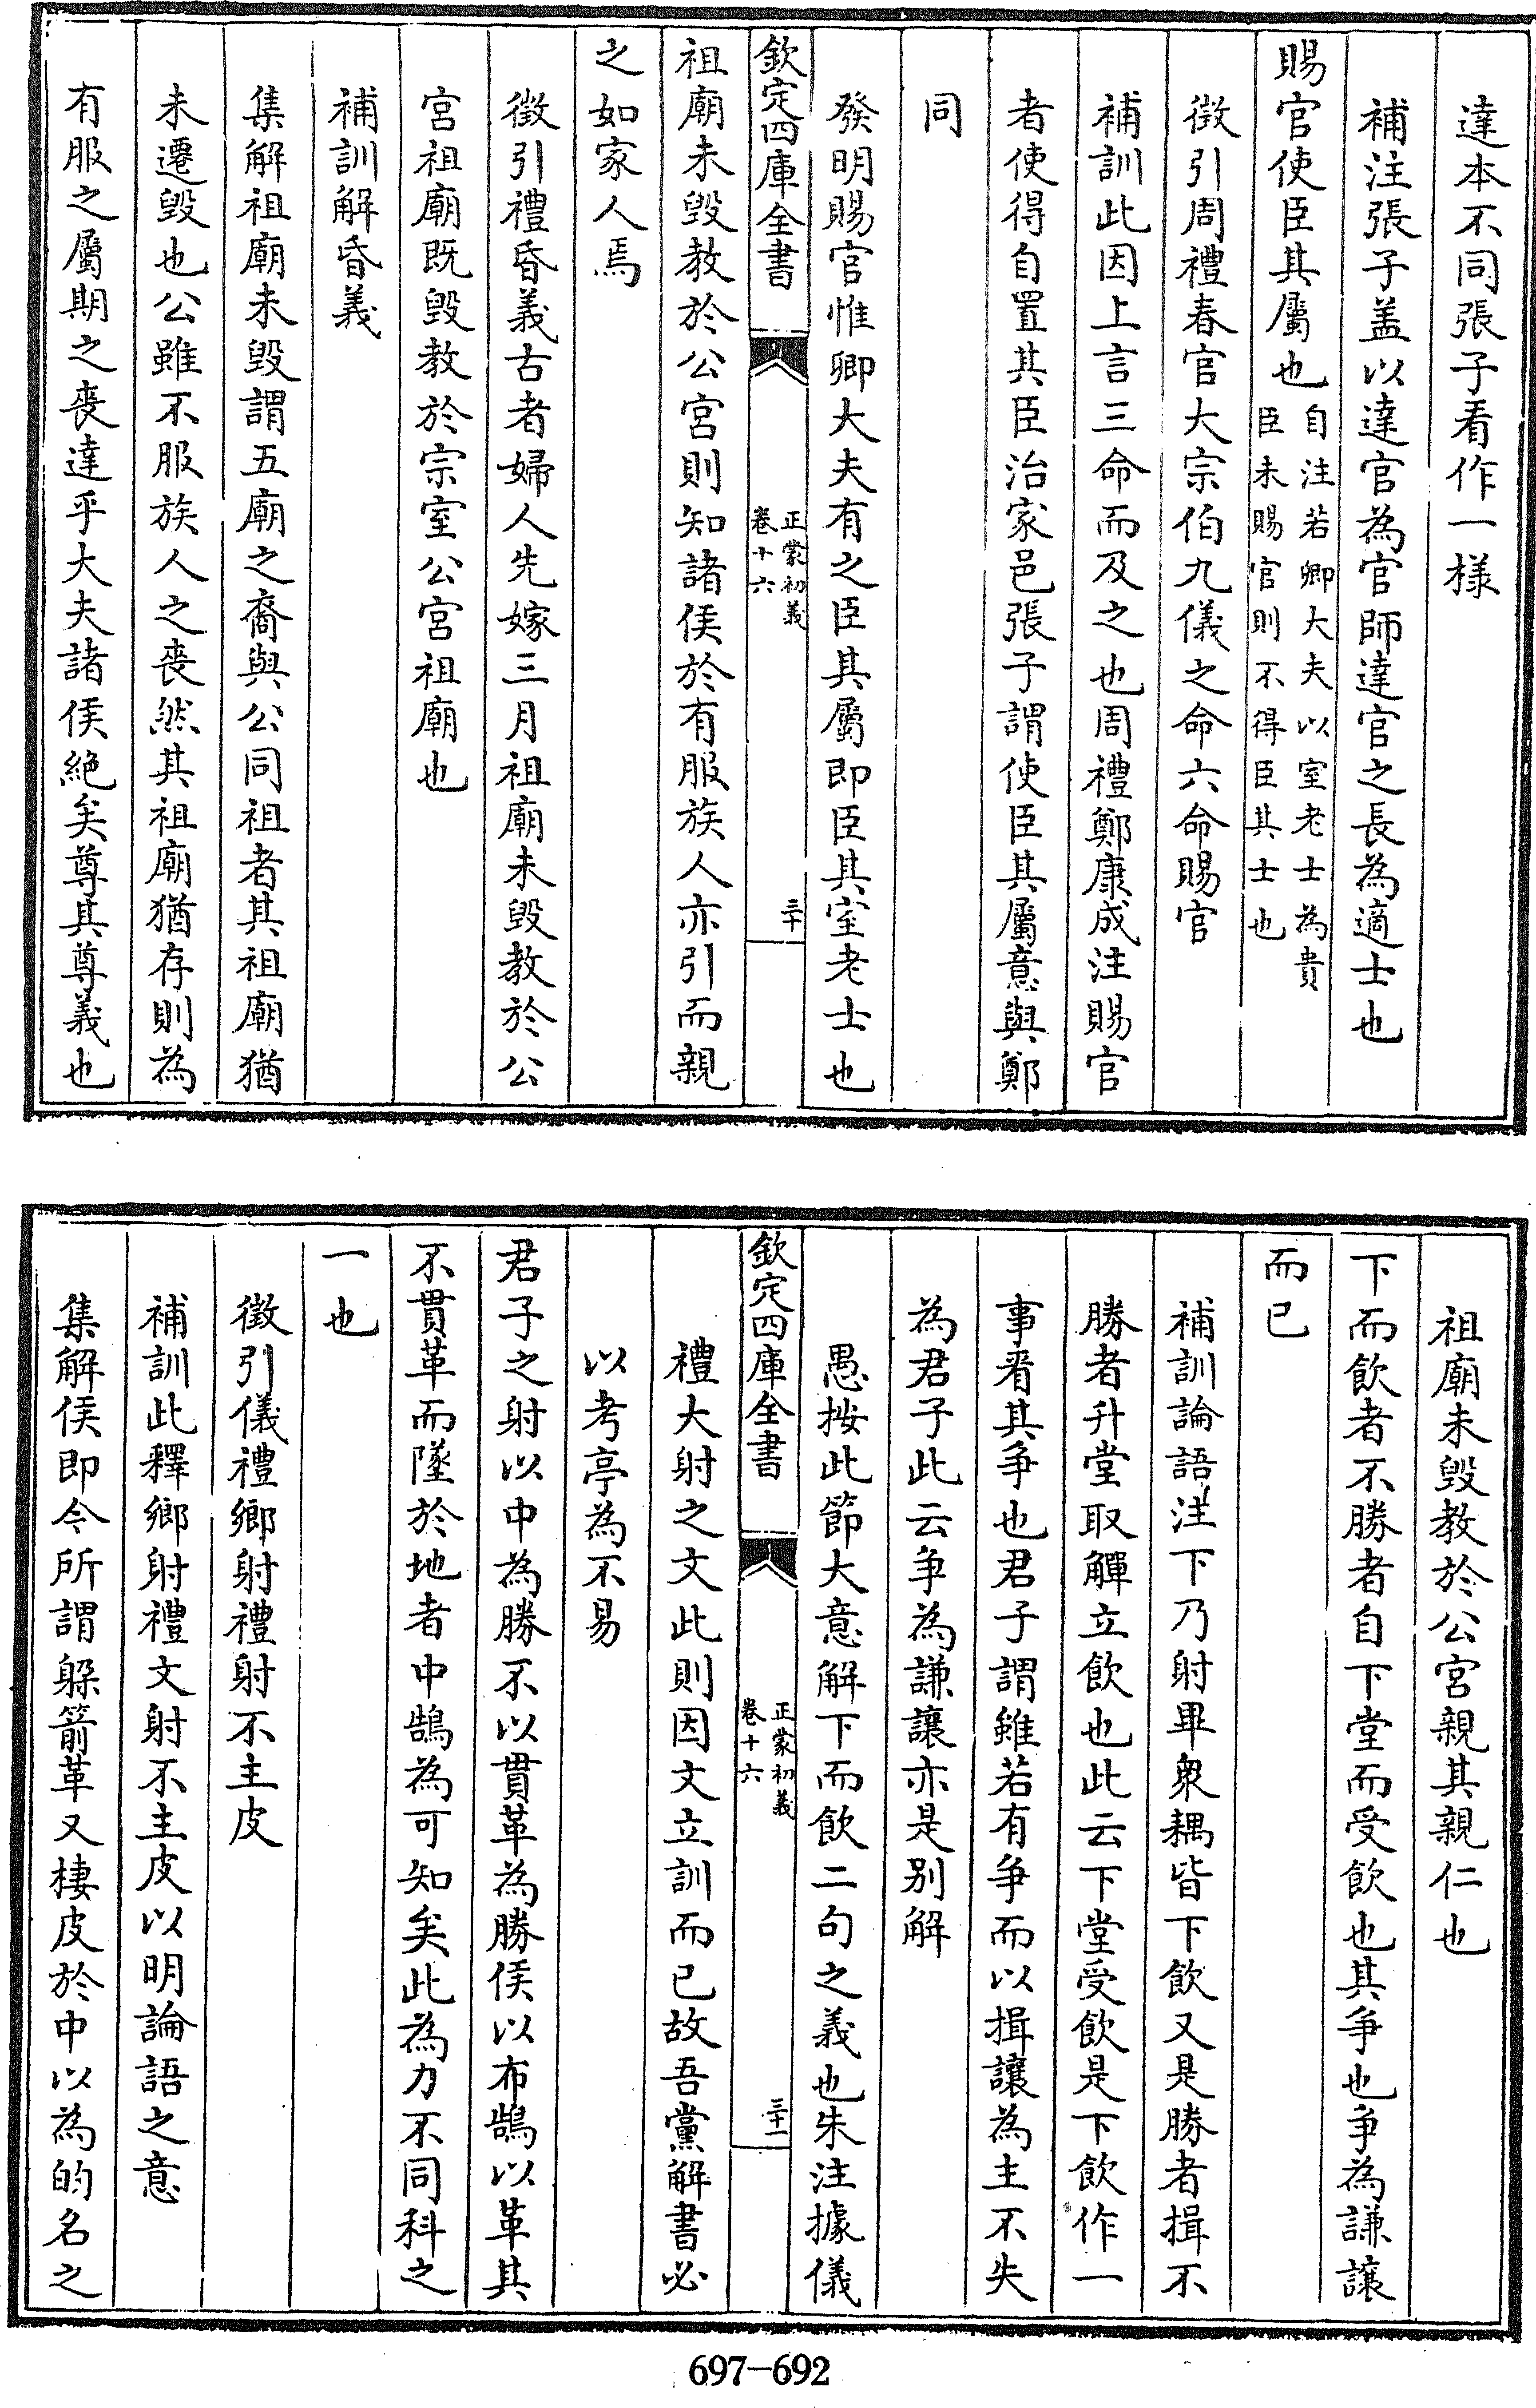 達本不同張子看作一樣
補注張子盖以達官為官師達官之長為適士也
賜官使臣其屬也自注若卿大夫以室老士為貴
臣未賜官則不得臣其士也
徴引周禮春官大宗伯九儀之命六命賜官
補訓此因上言三命而及之也周禮鄭康成注賜官
者使得自置其臣治家邑張子謂使臣其屬意與鄭
同
發明賜官惟卿大夫有之臣其屬即臣其室老士也
欽定四庫全書
正蒙初義
卷十六
三十
祖廟未毁教於公宮則知諸侯於有服族人亦引而親
之如家人焉
徴引禮昏義古者婦人先嫁三月祖廟未毁教於公
宮祖廟既毁教於宗室公宮祖廟也
補訓解昏義
集解祖廟未毁謂五廟之裔與公同祖者其祖廟猶
未遷毁也公雖不服族人之喪然其祖廟猶存則為
有服之屬期之喪達乎大夫諸侯絶矣尊其尊義也
祖廟未毁教於公宮親其親仁也
下而飲者不勝者自下堂而受飲也其爭也爭為謙讓
而已
補訓論語注下乃射畢衆耦皆下飲又是勝者揖不
勝者升堂取觶立飲也此云下堂受飲是下飲作一
事看其爭也君子謂雖若有爭而以揖讓為主不失
為君子此云爭為謙讓亦是别解
愚按此節大意解下而飲二句之義也朱注據儀
欽定四庫全書
正蒙初義
卷十六
三十一
禮大射之文此則因文立訓而已故吾黨解書必
以考亭為不易
君子之射以中為勝不以貫革為勝侯以布鵠以革其
不貫革而墜於地者中鵠為可知矣此為力不同科之
一也
徴引儀禮鄉射禮射不主皮
補訓此釋鄉射禮文射不主皮以明論語之意
集解侯即今所謂躲箭革又棲皮於中以為的名之
697-692